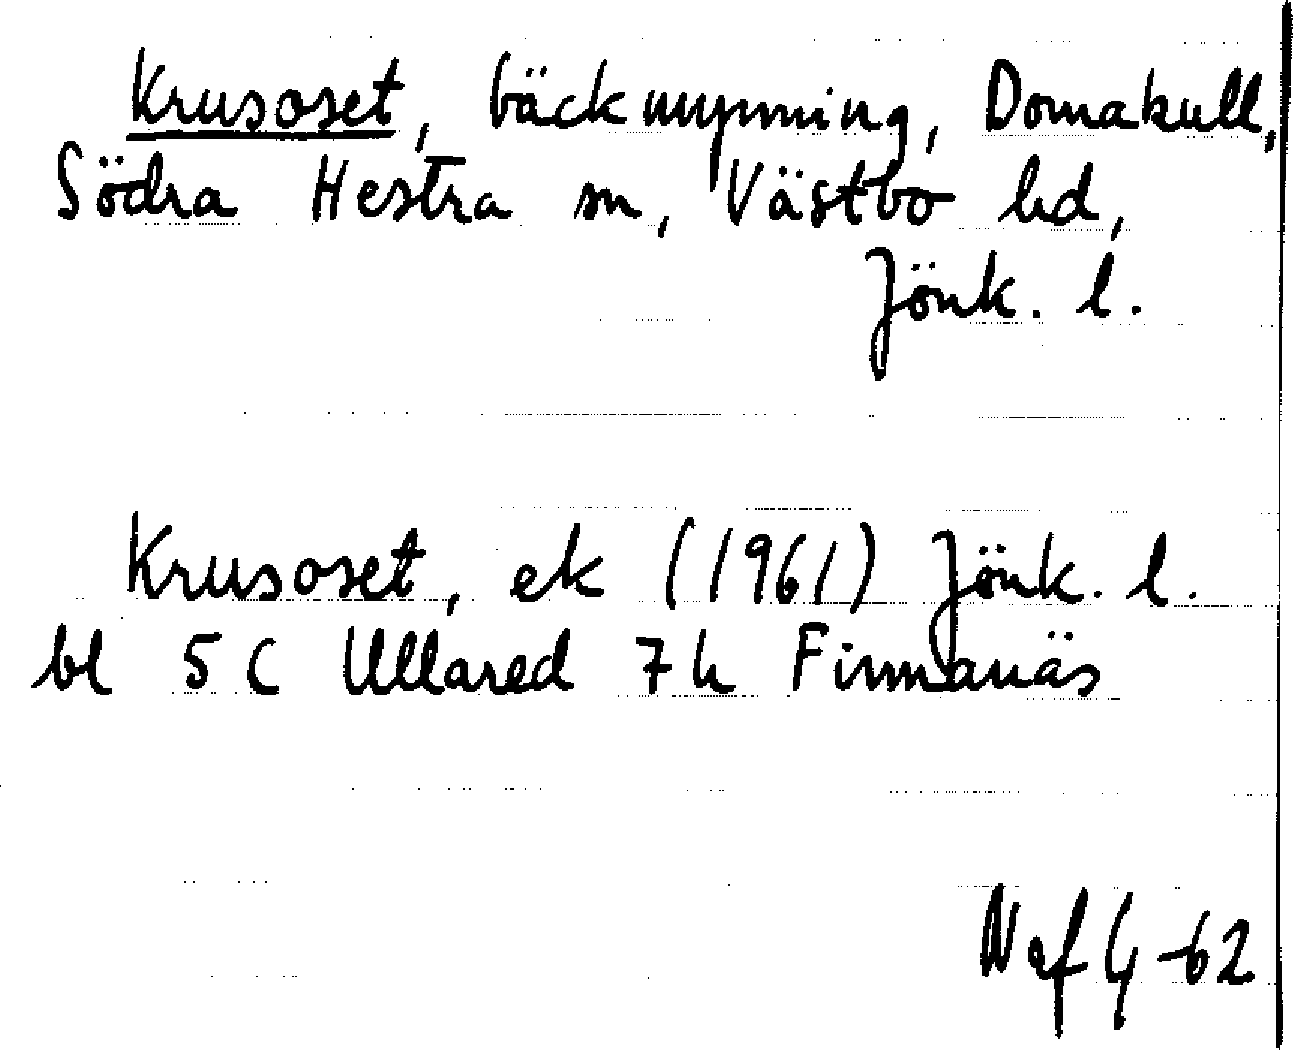 Krusoset, bäckmynning, Domakull,
Södra Hestra sn, Västbo hd,
Jönk. l.
Krusoset, ek (1961) Jönk. l.
bl 5 C Ullared 7 h Finnanäs
-62